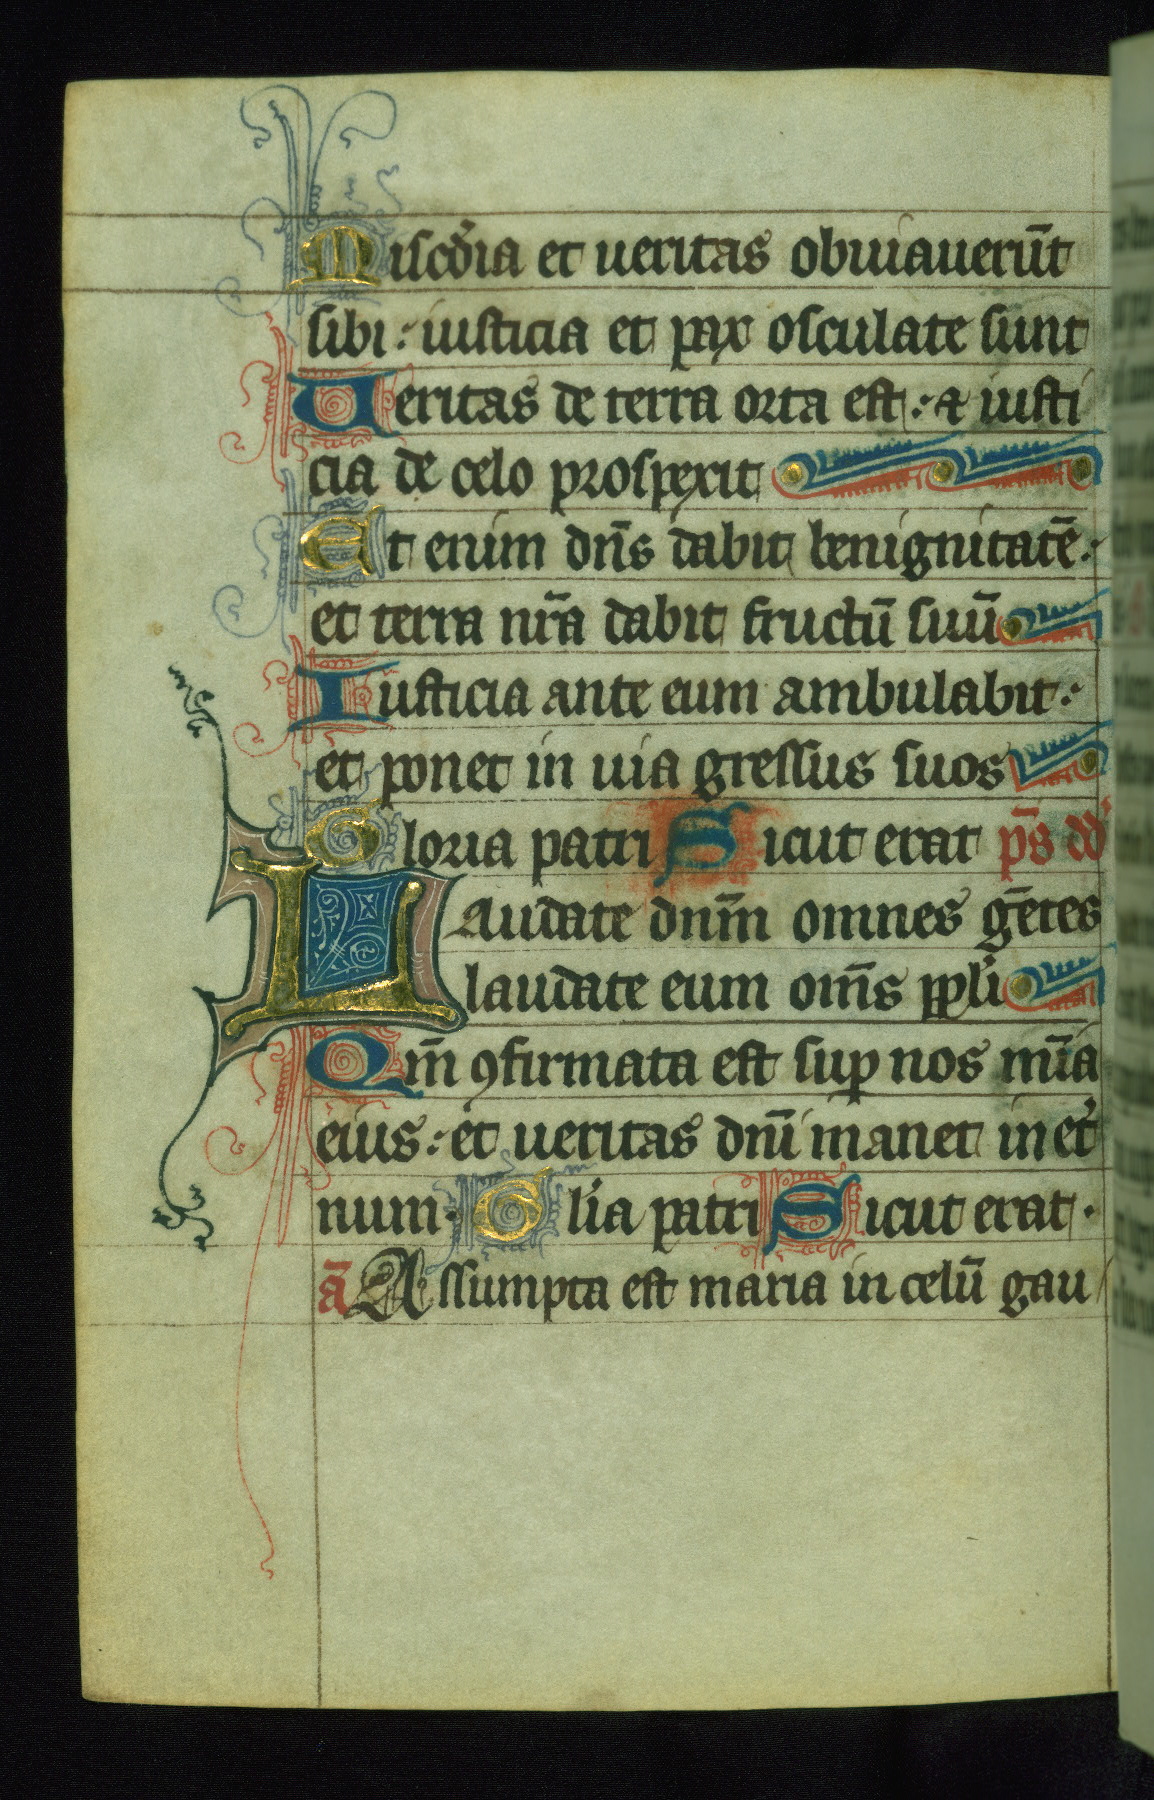 Misc̄dia et ueritas obuiauerūt
sibi : iusticia et pax osculate sunt
Ueritas de terra orta est : ⁊ iusti
cia de celo prospexit
Et enim dn̄s dabit benignitatē :
et terra nr̄a dabit fructū suū
Iusticia ante eum ambulabit :
et ponet in uia gressus suos
Gloria patri Sicut erat p̄s dd'
Laudate dnm̄ omnes gētes
laudate eum om̄s ppl'i
Qm̄ ꝯfirmata est suꝑ nos mīa
eius : et ueritas dn̄i manet in et'
num · Gl'ia patri Sicut erat ·
ā Assumpta est maria in celū gau